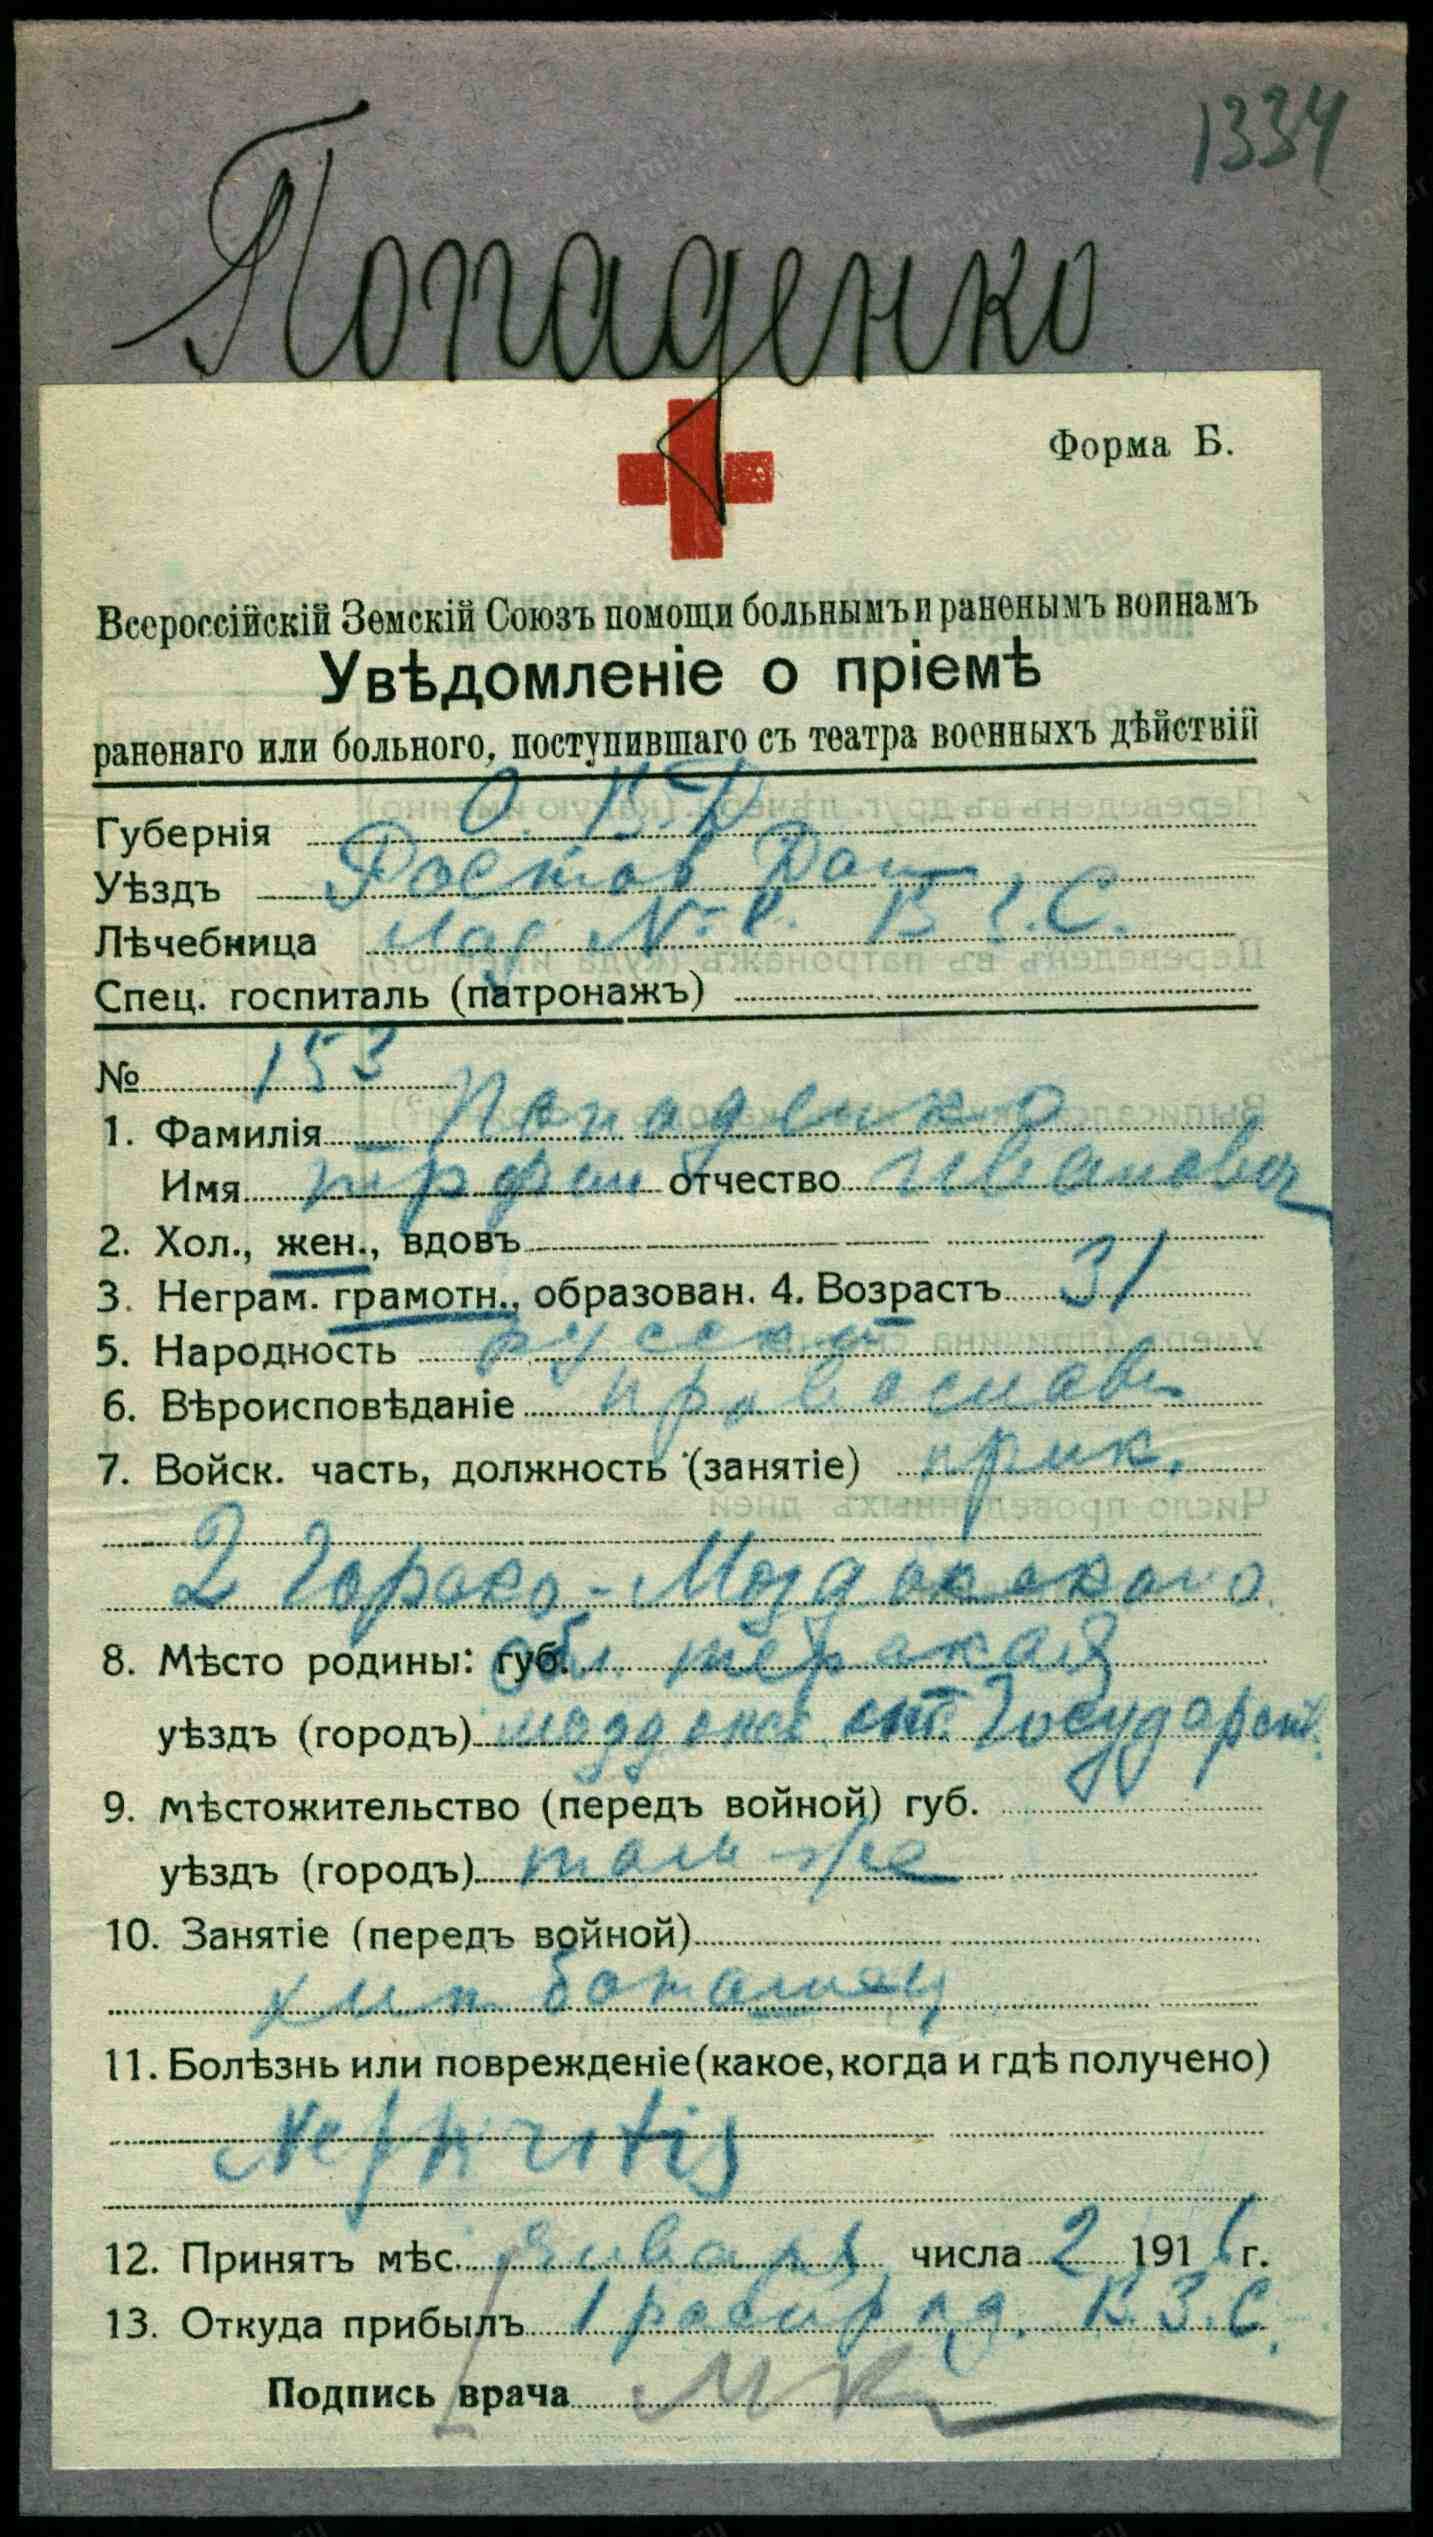 1334
Попаденко
Форма Б.
Всероссійскій Земскій Союзъ помощи больнымъ и раненымъ воинамъ
Увѣдомленіе о пріемѣ
раненаго или больного, поступившаго съ театра военныхъ дѣйствій
Губернія О. В. Д
Уѣздъ Ростов Дон
Лѣчебница Лаз № В. З. С.
Спец. госпиталь (патронажъ)
№ 153
1. Фамилія Попаденко
Имя отчество Иванович
2. Хол., жен., вдовъ
3. Неграм. грамотн., образован. 4. Возрастъ 31
5. Народность русский
6. Вѣроисповѣданіе православ
7. Войск. часть, должность (занятіе) прик.
2 Горско-Моздокского
8. Мѣсто родины: губ. обл. терская
уѣздъ (городъ) ст. Государств.
9. Мѣстожительство (передъ войной) губ.
уѣздъ (городъ) там же
10. Занятіе (передъ войной)
11. Болѣзнь или поврежденіе (какое, когда и гдѣ получено)
Nephritis
12. Принятъ мѣс. Января числа 2 1916 г.
13. Откуда прибылъ 1 В. З. С.
Подпись врача